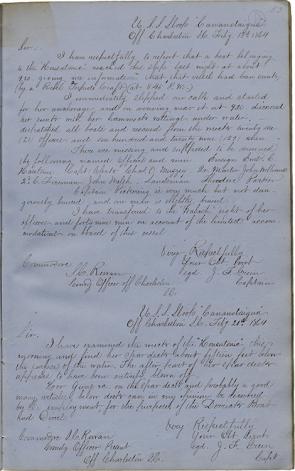 U.S.S. Sloop "Canandaigua"
Off Charleston Feby 18th 1864
Sir.
I have respectfully to report that a boat belonging
to the Housatonic reached this ship last night at about
9.20 giving me information that that vessel had been sunk,
by a Rebel Torpedo Craft
I immediately slipped our cable and started
for her anchorage and on arriving near it at 9.35 discovered
her sunk with her hammock nettings under water,
dispatched all boats and rescued from the wreck twenty one
(21) officers and one hundred and twenty nine (129) men.
There are missing and supposed to be drowned
the following named officers and men. Ensign
Hazeltine. Capt. Clerk
2d C. Fireman John Walsh. Theodore Parker
Captain Pickering is very much but not dan-
gerously bruised, and one man is slightly bruised.
I have transferred to the Wabash eight of her
officers and forty nine men on account of the limited accom-
modations on board of this vessel
Very Respectfully
Your Obt Servt
Commodore
S.C. Rowan
sgd. J. F. Green
Comdg Officer off Charleston
Captain
S.C.
U.S.S. Sloop "Canandaigua"
Off Charleston S.C. Feby 20th 1864
Sir.
I have examined the wreck of the "Housatonic" this
morning and find her spar deck about fifteen feet below
the surface of the water. The after part of her spar deck
appears to have been entirely blown off.
Her guns &c. on the spar deck and probably a good
many articles below deck can in my opinion be recovered
by the employment for the purpose of the Derrick Boat
and Divers.
Very Respectfully
Commodore S.C. Rowan
Your Obt Servt
Comdg Officer Present
sgd. J. F. Green
Off Charleston S.C.
Capt.